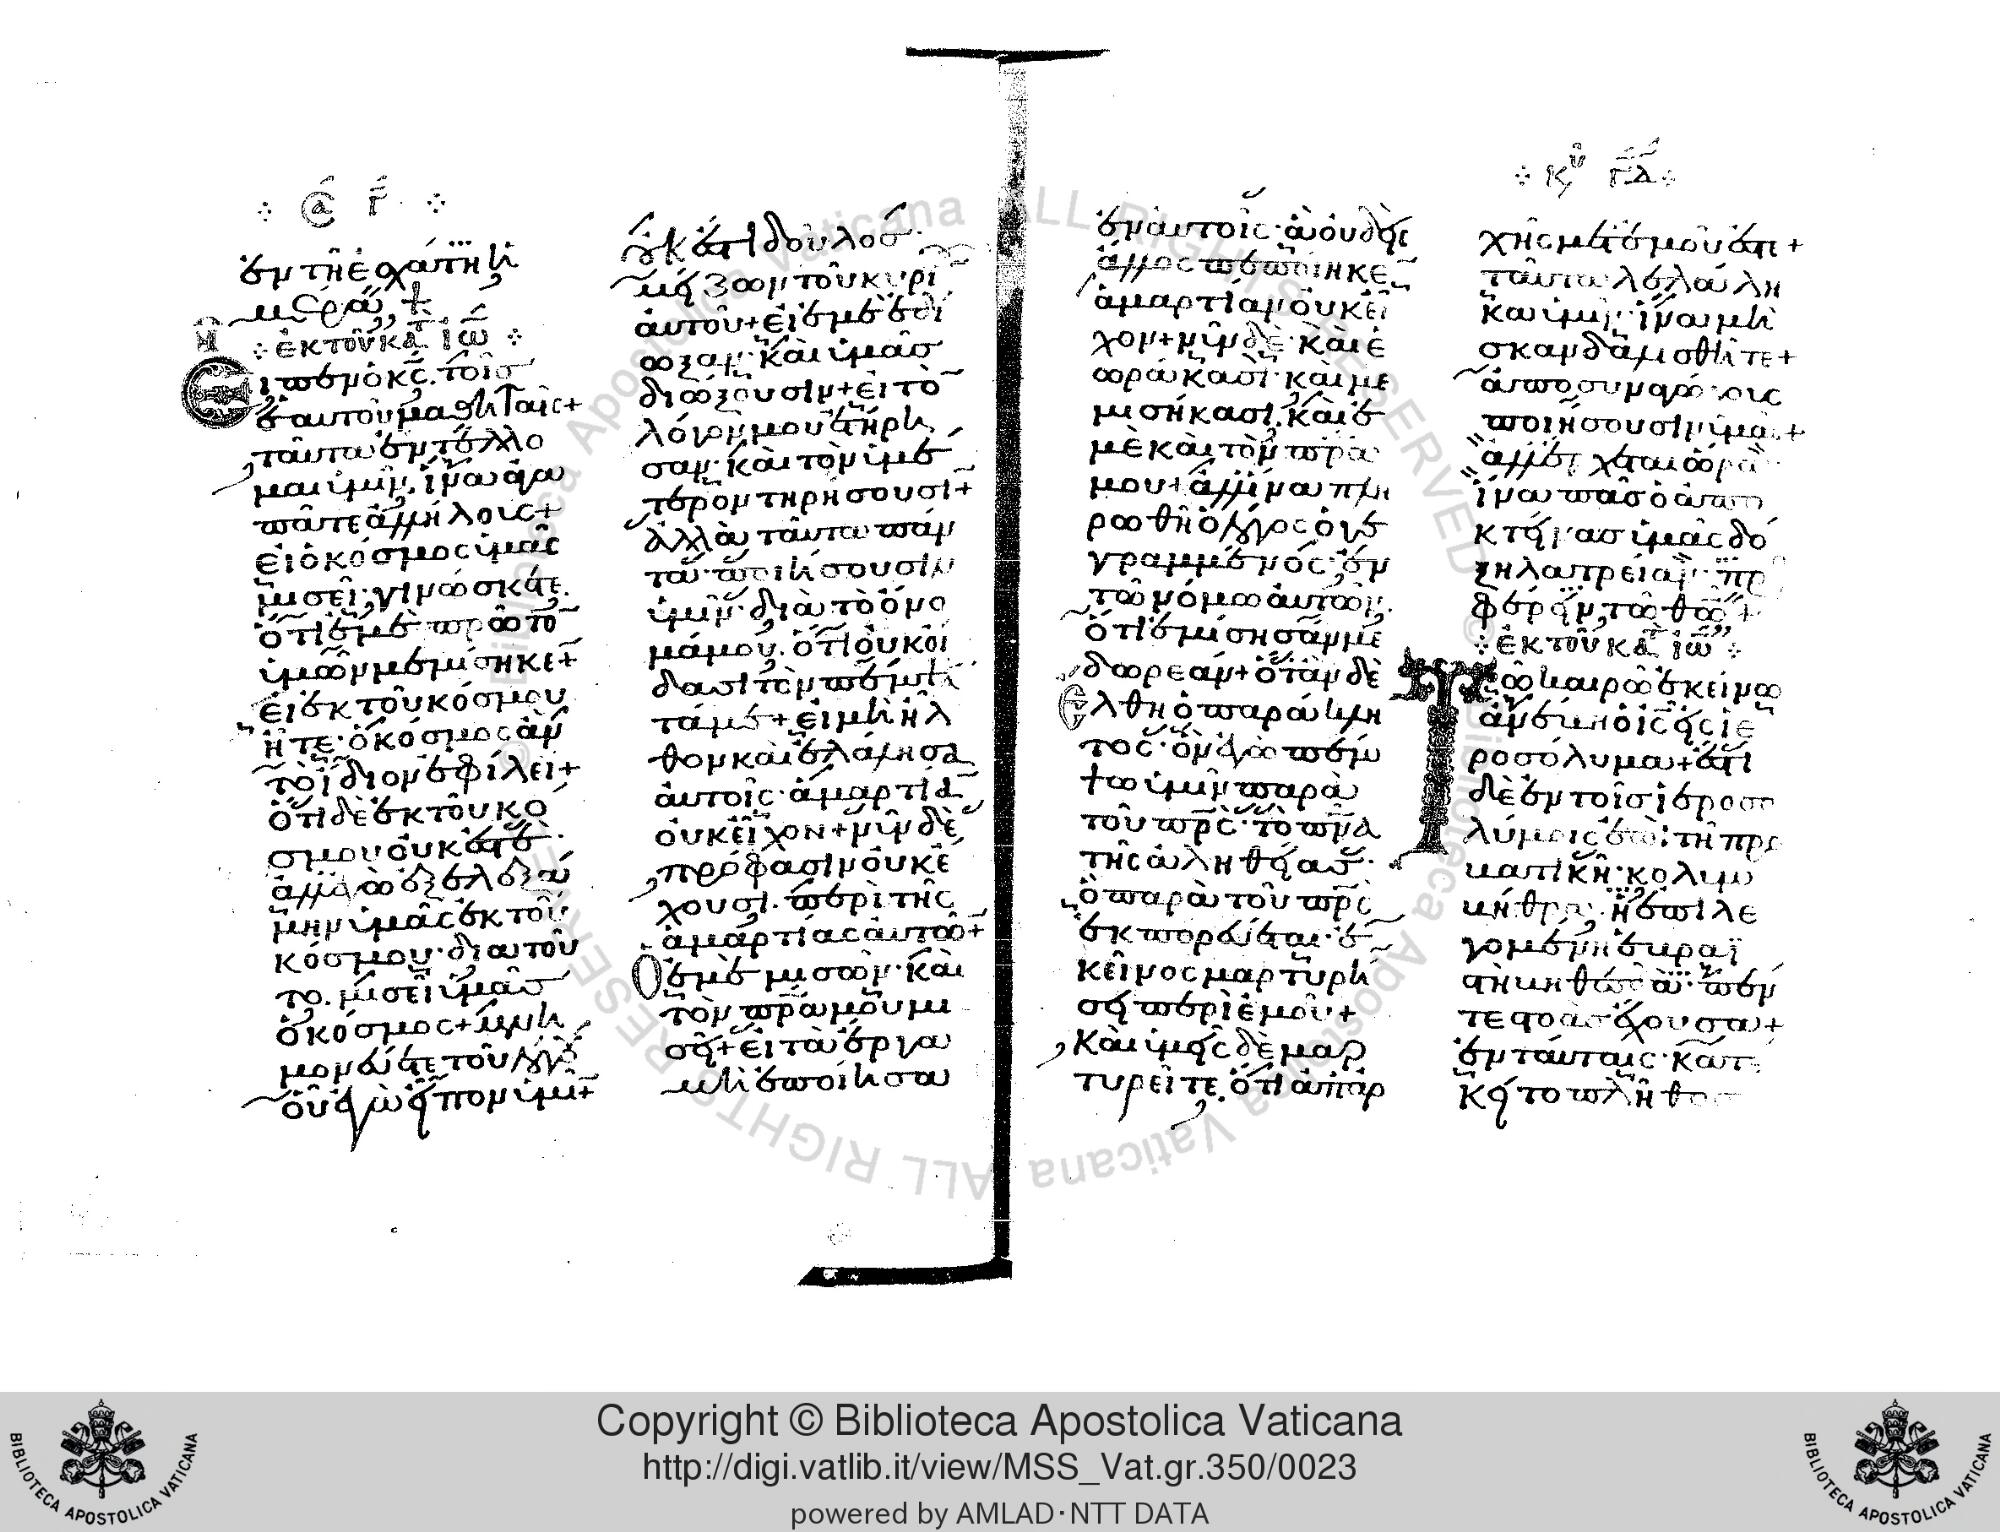 ἐν τῆ ἐσχάτη ἡ
μέρα +
ἐκ τοῦ κατ ἰω
εἶπεν ὁ κς. τοῖς
ἑαυτοῦ μαθηταῖς +
ταῦτα ἐντέλλο
μαι ὑμῖν. ἵνα ἀγα
πᾶτε ἀλλήλους +
εἰ ὁ κόσμος ὑμᾶς
μισεῖ. γινώσκετε.
ὅτι ἐμὲ πρῶτο
ὑμῶν μεμίσηκε +
εἰ ἐκ τοῦ κόσμου
ἦτε. ὁ κόσμος ἂν
τὸ ἴδιον ἐφίλει +
ὅτι δὲ ἐκ τοῦ κό
σμου οὐκ ἐστὲ.
ἀλλ' ἐγὼ ἐξελεξά
μην ὑμᾶς ἐκ τοῦ
κόσμου. διατοῦ
το. μισεῖ ὑμᾶς
ὁ κόσμος + μνη
μονεύετε τοῦ λόγου
οὗ ἐγὼ εἶπον ὑμῖ +
οὐκ ἔστι δοῦλος
μείζων τοῦ κυρί
αὐτοῦ + εἰ ἐμὲ ἐδί
ωξαν. καὶ ὑμᾶς
διώξουσιν + εἰ τὸ
λόγον μου ἐτήρη
σαν. καὶ τὸν ὑμέ
τερον τηρήσουσι +
ἀλλὰ ταῦτα πάν
τα. ποιήσουσιν
ὑμῖν. διὰ τὸ ὄνο
μά μου. ὅτι οὐκ οἴ
δασι τὸν πέμψα
τά με + εἰ μὴ ἦλ
θον καὶ ἐλάλησα
αὐτοῖς. ἁμαρτία
οὐκ εἶχον + νῦν δὲ
πρόφασιν οὐκ ἔ
χουσι. περὶ τῆς
ἁμαρτίας αὐτῶ +
Ὁ ἐμὲ μισῶν. καὶ
τὸν πρα μου μι
σεῖ + εἰ τὰ ἔργα
μὴ ἐποίησα
ἐν αὐτοῖς. ἃ οὐδεὶς
ἄλλος πεποίηκε
ἁμαρτίαν οὐκ εἶ
χον + νῦν δὲ. καὶ ἑ
ωράκασι. καὶ με
μισήκασι. καὶ ἐ
μὲ καὶ τὸν πρα
μου + ἀλλ' ἵνα πλη
ρωθῆ ὁ λόγος ὁ γε
γραμμένος. ἐν
τῶ νόμω αὐτῶν.
ὅτι ἐμίσησάν με
δωρεάν + ὅταν δὲ
ἔλθη ὁ παράκλη
τος. ὃν ἐγὼ πέμ
ψω ὑμῖν παρὰ
τοῦ πρς. τὸ πνα
τῆς ἀληθείας.
ὃ παρὰ τοῦ πρς
ἐκπορεύεται. ἐ
κεῖνος μαρτυρή
σει περὶ ἐμοῦ +
καὶ ὑμεῖς δὲ μαρ
τυρεῖτε. ὅτι ἀπ' ἀρ
χῆς μετ' ἐμοῦ ἐστε +
ταῦτα λελάλη
κα ὑμῖν. ἵνα μὴ
σκανδαλισθῆτε +
ἀποσυναγώγους
ποιήσουσιν ὑμᾶς +
ἀλλ' ἔρχεται ὥρα
ἵνα πᾶς ὁ ἀπο
κτείνας ὑμᾶς δό
ξη λατρείαν προ
φέρειν τῶ θῶ +
ἐκ τοῦ κατ ἰω
Τῶ καιρῶ ἐκείνω
ἀνέβη ὁ ις εἰς ἱε
ροσόλυμα + ἔστι
δὲ ἐν τοῖς ἱεροσο
λύμοις ἐπὶ τῆ προ
βατικῆ. κολυμ
βήθρα. ἡ ἐπιλε
γομένη ἑβραϊ
στὶ βηθεσδὰ. πέν
τε στοὰς ἔχουσα +
ἐν ταύταις. κατέ
κειτο πλῆθος